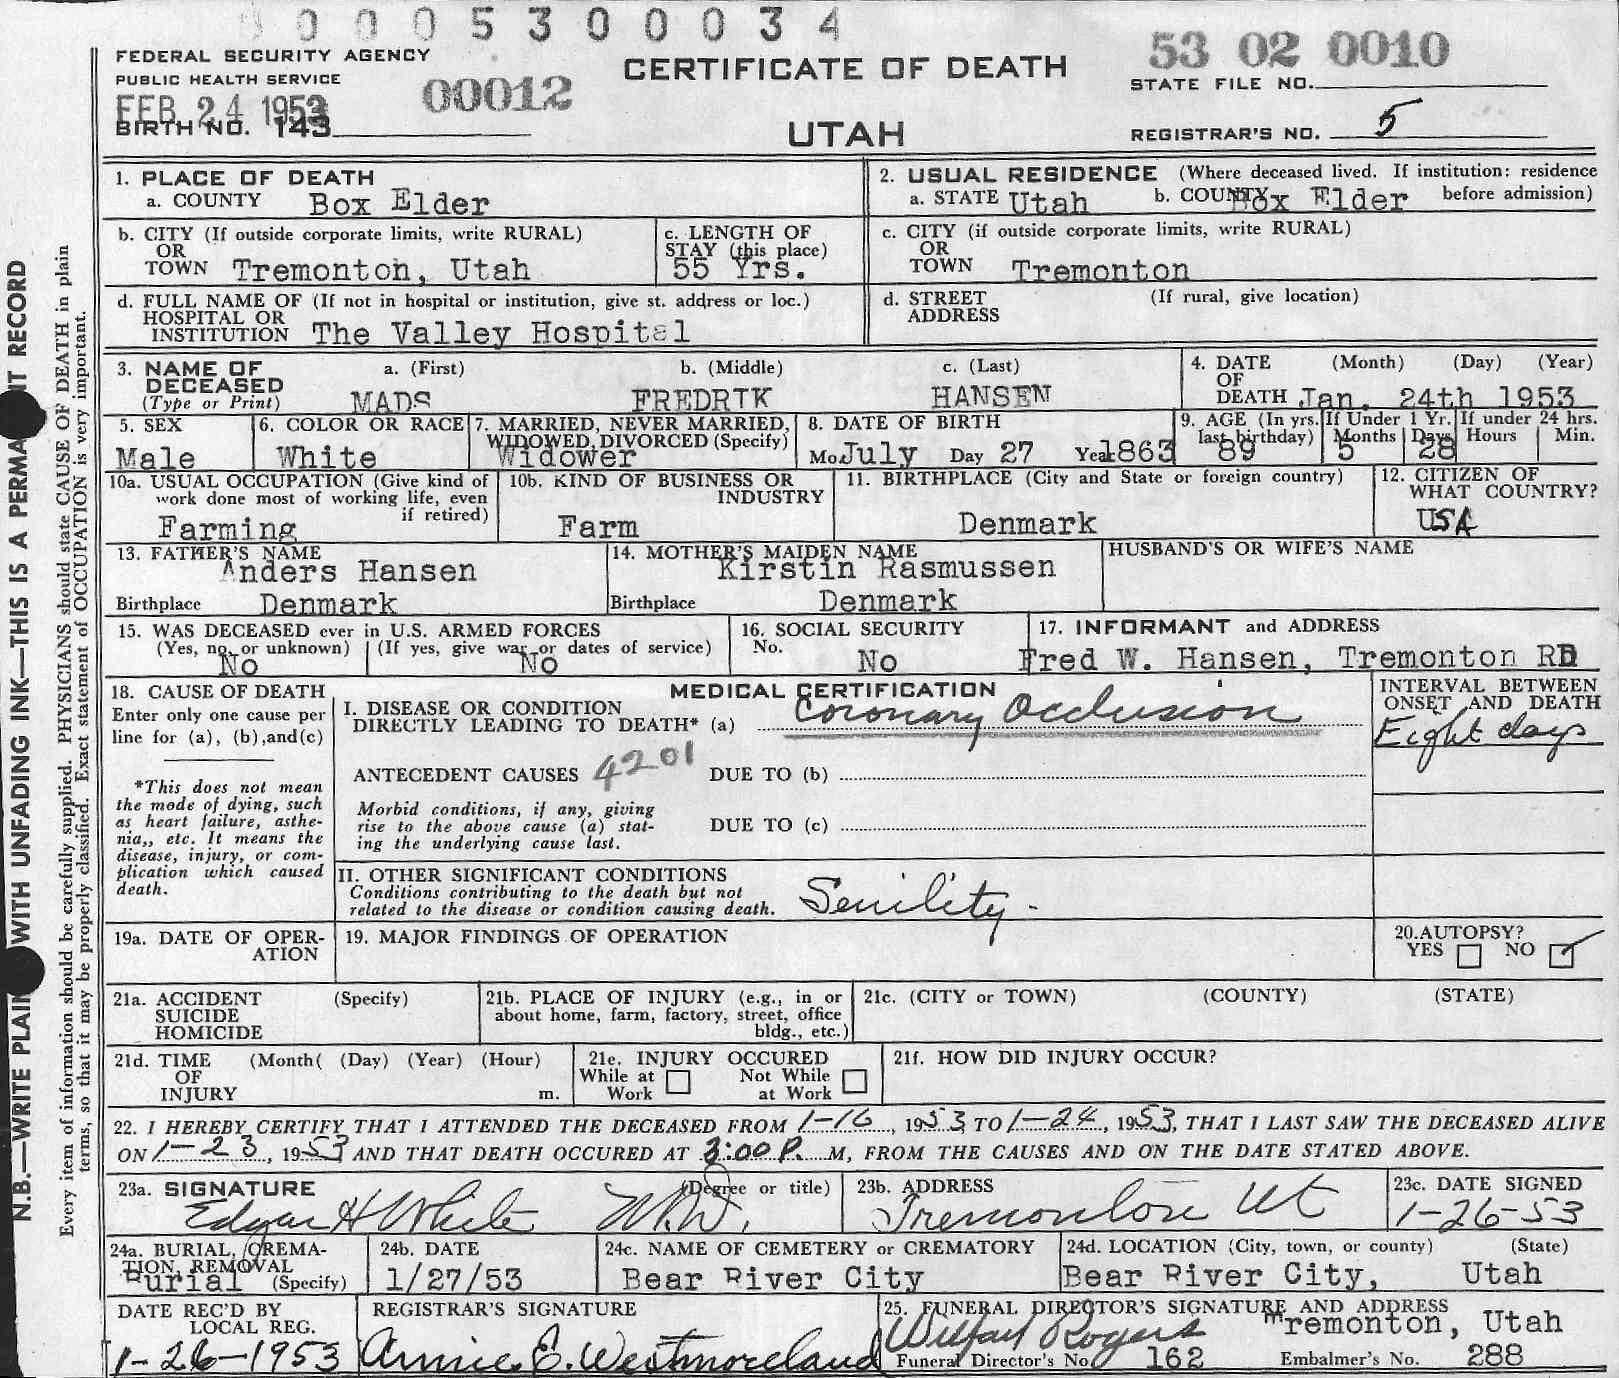 0 0 0 5 3 0 0 0 3 4
FEDERAL SECURITY AGENCY
PUBLIC HEALTH SERVICE
FEB 24 1953
BIRTH NO. 143
00012
CERTIFICATE OF DEATH
UTAH
53 02 0010
STATE FILE NO.
REGISTRAR'S NO. 5
1. PLACE OF DEATH
a. COUNTY Box Elder
2. USUAL RESIDENCE (Where deceased lived. If institution: residence before admission)
a. STATE Utah b. COUNTY Box Elder
b. CITY (If outside corporate limits, write RURAL)
OR
TOWN Tremonton, Utah
c. LENGTH OF
STAY (this place)
55 Yrs.
c. CITY (if outside corporate limits, write RURAL)
OR
TOWN Tremonton
d. FULL NAME OF (If not in hospital or institution, give st. address or loc.)
HOSPITAL OR
INSTITUTION The Valley Hospital
d. STREET (If rural, give location)
ADDRESS
3. NAME OF
DECEASED
(Type or Print)
a. (First) b. (Middle) c. (Last)
MADS FREDRIK HANSEN
4. DATE (Month) (Day) (Year)
OF
DEATH Jan. 24th 1953
5. SEX
Male
6. COLOR OR RACE
White
7. MARRIED, NEVER MARRIED,
WIDOWED, DIVORCED (Specify)
Widower
8. DATE OF BIRTH
Mo July Day 27 Year 1863
9. AGE (In yrs.
last birthday)
89
If Under 1 Yr.
Months Days
5 28
If under 24 hrs.
Hours Min.
10a. USUAL OCCUPATION (Give kind of
work done most of working life, even
if retired)
Farming
10b. KIND OF BUSINESS OR
INDUSTRY
Farm
11. BIRTHPLACE (City and State or foreign country)
Denmark
12. CITIZEN OF
WHAT COUNTRY?
USA
13. FATHER'S NAME
Anders Hansen
Birthplace Denmark
14. MOTHER'S MAIDEN NAME
Kirstin Rasmussen
Birthplace Denmark
HUSBAND'S OR WIFE'S NAME
15. WAS DECEASED ever in U.S. ARMED FORCES
(Yes, no, or unknown) (If yes, give war or dates of service)
No No
16. SOCIAL SECURITY
No.
No
17. INFORMANT and ADDRESS
Fred W. Hansen, Tremonton RD
18. CAUSE OF DEATH
Enter only one cause per
line for (a), (b),and(c)
*This does not mean
the mode of dying, such
as heart failure, asthe-
nia,, etc. It means the
disease, injury, or com-
plication which caused
death.
MEDICAL CERTIFICATION
I. DISEASE OR CONDITION
DIRECTLY LEADING TO DEATH* (a) Coronary Occlusion
INTERVAL BETWEEN
ONSET AND DEATH
Eight days
ANTECEDENT CAUSES 4201 DUE TO (b)
Morbid conditions, if any, giving
rise to the above cause (a) stat-
ing the underlying cause last.
DUE TO (c)
II. OTHER SIGNIFICANT CONDITIONS
Conditions contributing to the death but not
related to the disease or condition causing death.
Senility -
19a. DATE OF OPER-
ATION
19. MAJOR FINDINGS OF OPERATION
20.AUTOPSY?
YES NO
21a. ACCIDENT (Specify)
SUICIDE
HOMICIDE
21b. PLACE OF INJURY (e.g., in or
about home, farm, factory, street, office
bldg., etc.)
21c. (CITY or TOWN) (COUNTY) (STATE)
21d. TIME (Month( (Day) (Year) (Hour)
OF
INJURY m.
21e. INJURY OCCURED
While at Work Not While at Work
21f. HOW DID INJURY OCCUR?
22. I HEREBY CERTIFY THAT I ATTENDED THE DECEASED FROM 1-16, 1953, TO 1-24, 1953, THAT I LAST SAW THE DECEASED ALIVE
ON 1-23, 1953 AND THAT DEATH OCCURED AT 3:00 P. M, FROM THE CAUSES AND ON THE DATE STATED ABOVE.
23a. SIGNATURE (Degree or title)
Edgar H White M.D.
23b. ADDRESS
Tremonton Ut
23c. DATE SIGNED
1-26-53
24a. BURIAL, CREMA-
TION, REMOVAL
Burial (Specify)
24b. DATE
1/27/53
24c. NAME OF CEMETERY or CREMATORY
Bear River City
24d. LOCATION (City, town, or county) (State)
Bear River City, Utah
DATE REC'D BY
LOCAL REG.
1-26-1953
REGISTRAR'S SIGNATURE
Annie E. Westmoreland
25. FUNERAL DIRECTOR'S SIGNATURE AND ADDRESS
Rogers Tremonton, Utah
Funeral Director's No. 162 Embalmer's No. 288
N.B.—WRITE PLAIN WITH UNFADING INK—THIS IS A PERMA T RECORD
Every item of information should be carefully supplied. PHYSICIANS should state CAUSE OF DEATH in plain
terms, so that it may be properly classified. Exact statement of OCCUPATION is very important.